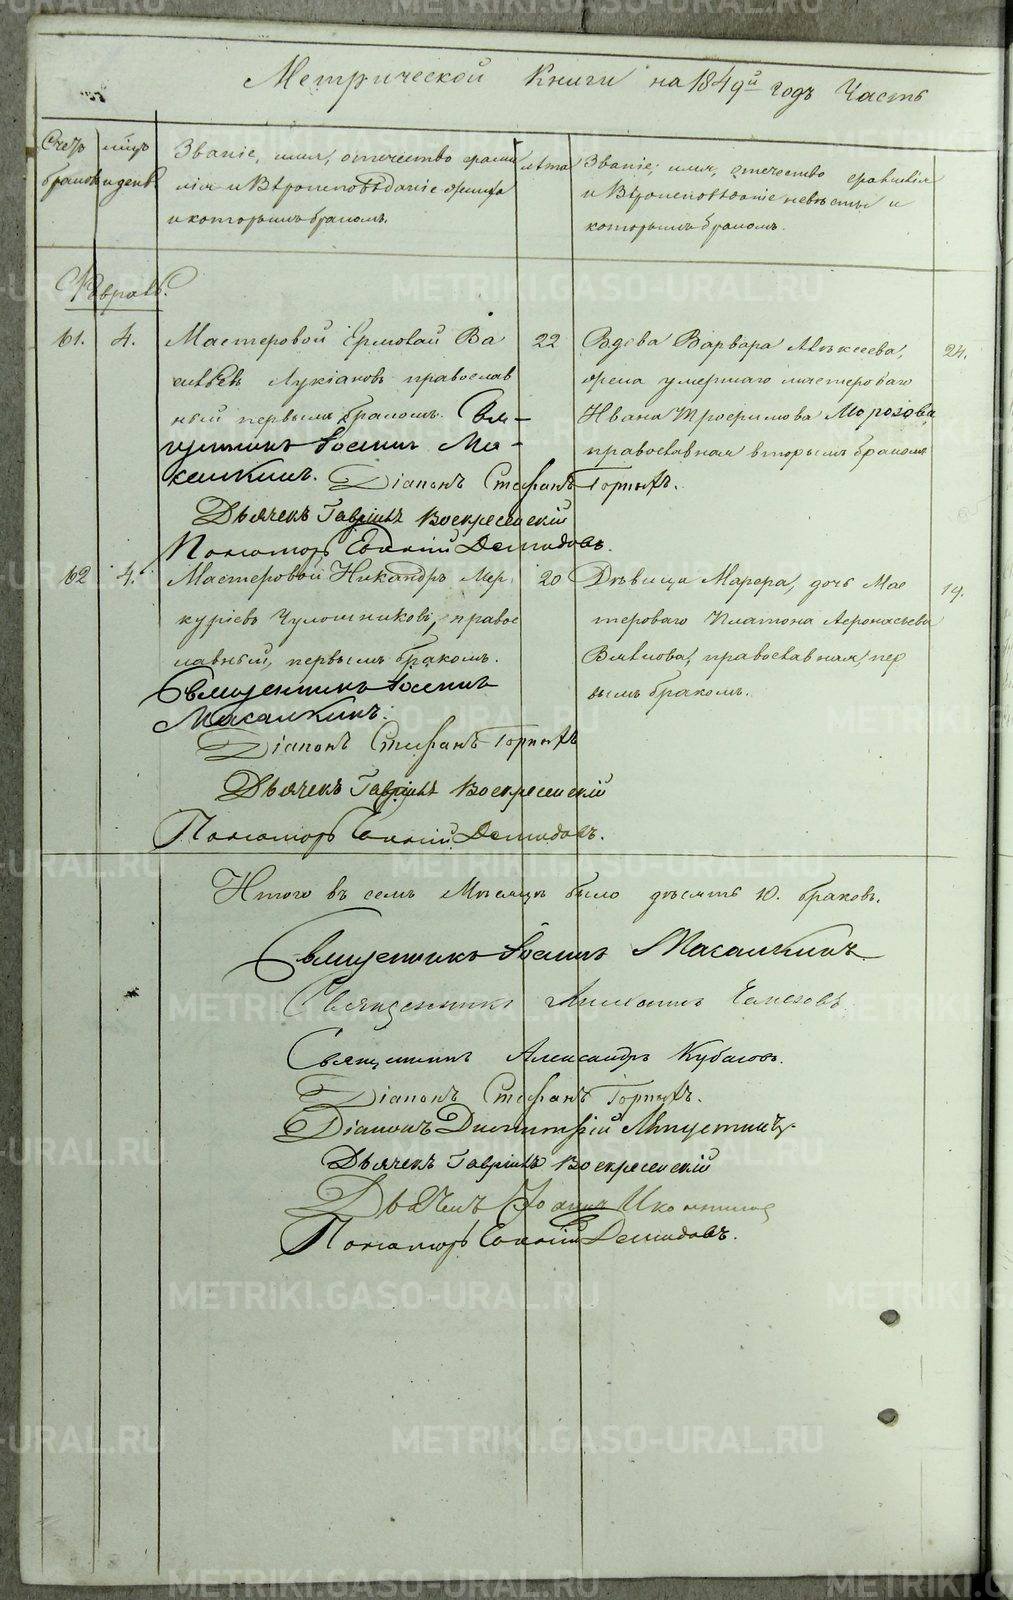 Метрической Книги на 1849й годъ Часть
Счетъ браковъ
мѣсяцъ и день
Званіе, имя, отечество фами
лія и Вѣроисповѣданіе жениха
и которымъ бракомъ.
лѣта
Званіе, имя, отечество фамилія
и Вѣроисповѣданіе невѣсты и
которымъ бракомъ.
Февраль.
61. 4.
Мастеровой Ермолай Ва
сильевъ Лукіановъ православ
ный первымъ бракомъ. Свя-
щенникъ Іоаннъ Ма-
салкинъ. Діаконъ Стефанъ Горныхъ.
Дьячекъ Гавріилъ Воскресенскій
Пономарь Евгеній Демидовъ.
22
Вдова Варвара Алексеева,
жена умершаго мастероваго
Ивана Трофимова Морозова,
православная вторымъ бракомъ
24.
62 4.
Мастеровой Никандръ Мер
куріевъ Чулошниковъ, правос
лавный, первымъ бракомъ.
Священникъ Іоаннъ
Масалкинъ.
Діаконъ Стефанъ Горныхъ
Дьячекъ Гавріилъ Воскресенскій
Пономарь Евгеній Демидовъ.
20
Дѣвица Марфа, дочь Мас
тероваго Платона Афонасьева
православная, пер
вымъ бракомъ.
19.
Итого въ семъ Мѣсяцѣ было дѣсять 10. браковъ.
Священникъ Іоаннъ Масалкинъ
Священникъ
Священникъ Александръ
Діаконъ Стефанъ Горныхъ.
Діаконъ Димитрій
Дьячекъ Гавріилъ Воскресенскій
Дьячекъ Іоаннъ
Пономарь Евгеній Демидовъ.
METRIKI.GASO-URAL.RU